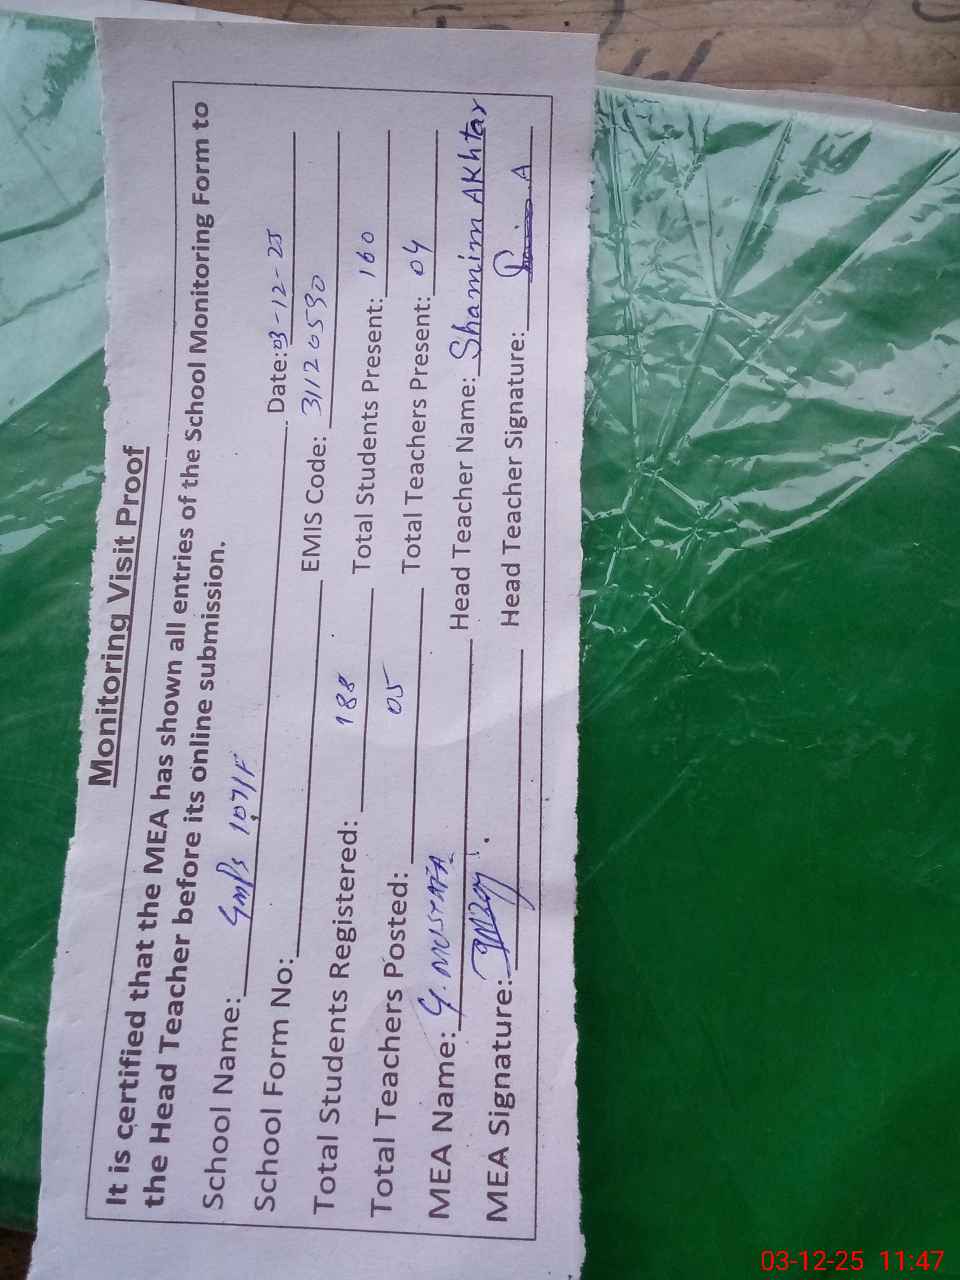 Monitoring Visit Proof
It is certified that the MEA has shown all entries of the School Monitoring Form to
the Head Teacher before its online submission.
School Name: GMPS 107/F Date: 03-12-25
School Form No: EMIS Code: 31120530
Total Students Registered: 188 Total Students Present: 160
Total Teachers Posted: 05 Total Teachers Present: 04
MEA Name: G. MUSTAFA Head Teacher Name: Shamim AKhtar
MEA Signature: Head Teacher Signature:
03-12-25 11:47